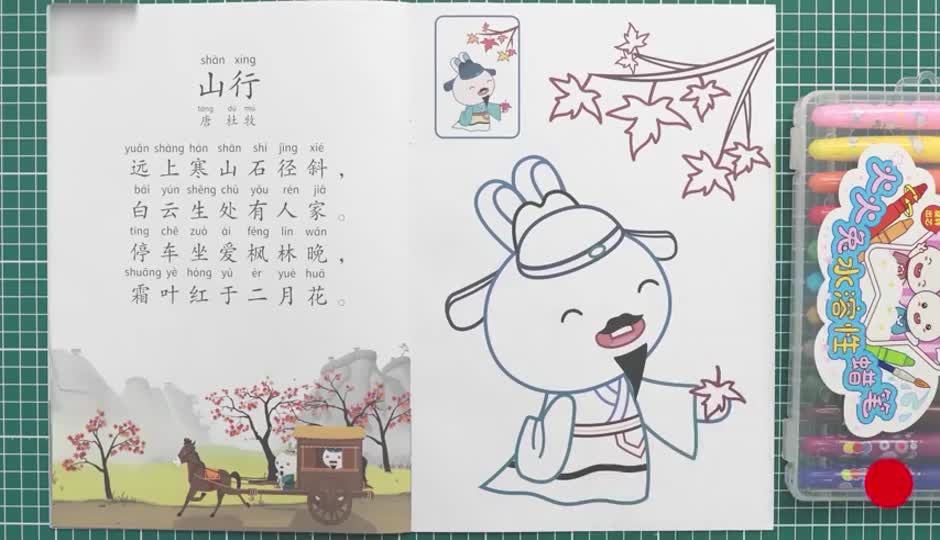 shān xíng
山行
táng dù mù
唐 杜牧
yuǎn shàng hán shān shí jìng xié
远上寒山石径斜，
bái yún shēng chù yǒu rén jiā
白云生处有人家。
tíng chē zuò ài fēng lín wǎn
停车坐爱枫林晚，
shuāng yè hóng yú èr yuè huā
霜叶红于二月花。
火火兔水溶性蜡笔